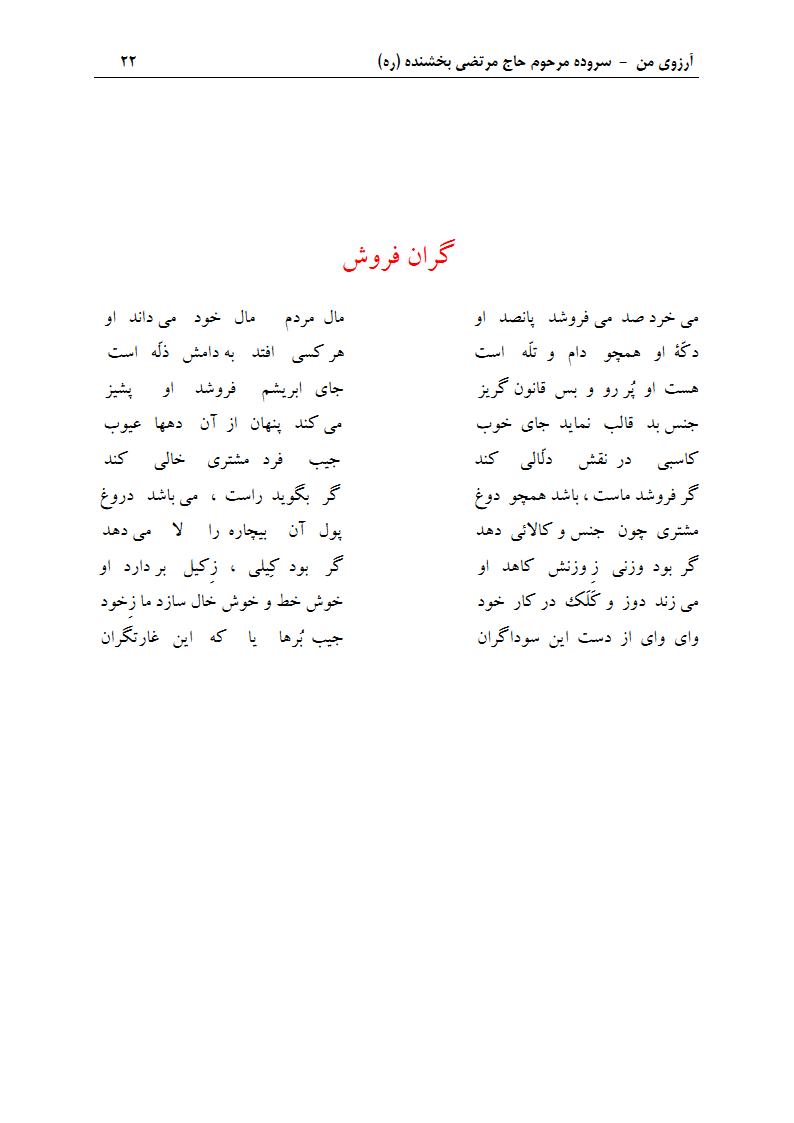 آرزوی من - سروده مرحوم حاج مرتضی بخشنده (ره) ۲۲
گران فروش
می خرد صد می فروشد پانصد او مال مردم مال خود می داند او
دکّهٔ او همچو دام و تلّه است هر کسی افتد به دامش ذلّه است
هست او پُر رو و بس قانون گریز جای ابریشم فروشد او پشیز
جنس بد قالب نماید جای خوب می کند پنهان از آن دهها عیوب
کاسبی در نقش دلّالی کند جیب فرد مشتری خالی کند
گر فروشد ماست ، باشد همچو دوغ گر بگوید راست ، می باشد دروغ
مشتری چون جنس و کالائی دهد پول آن بیچاره را لا می دهد
گر بود وزنی زِ وزنش کاهد او گر بود کِیلی ، زِکیل بر دارد او
می زند دوز و کَلَک در کار خود خوش خط و خوش خال سازد ما زِخود
وای وای از دست این سوداگران جیب بُرها یا که این غارتگران